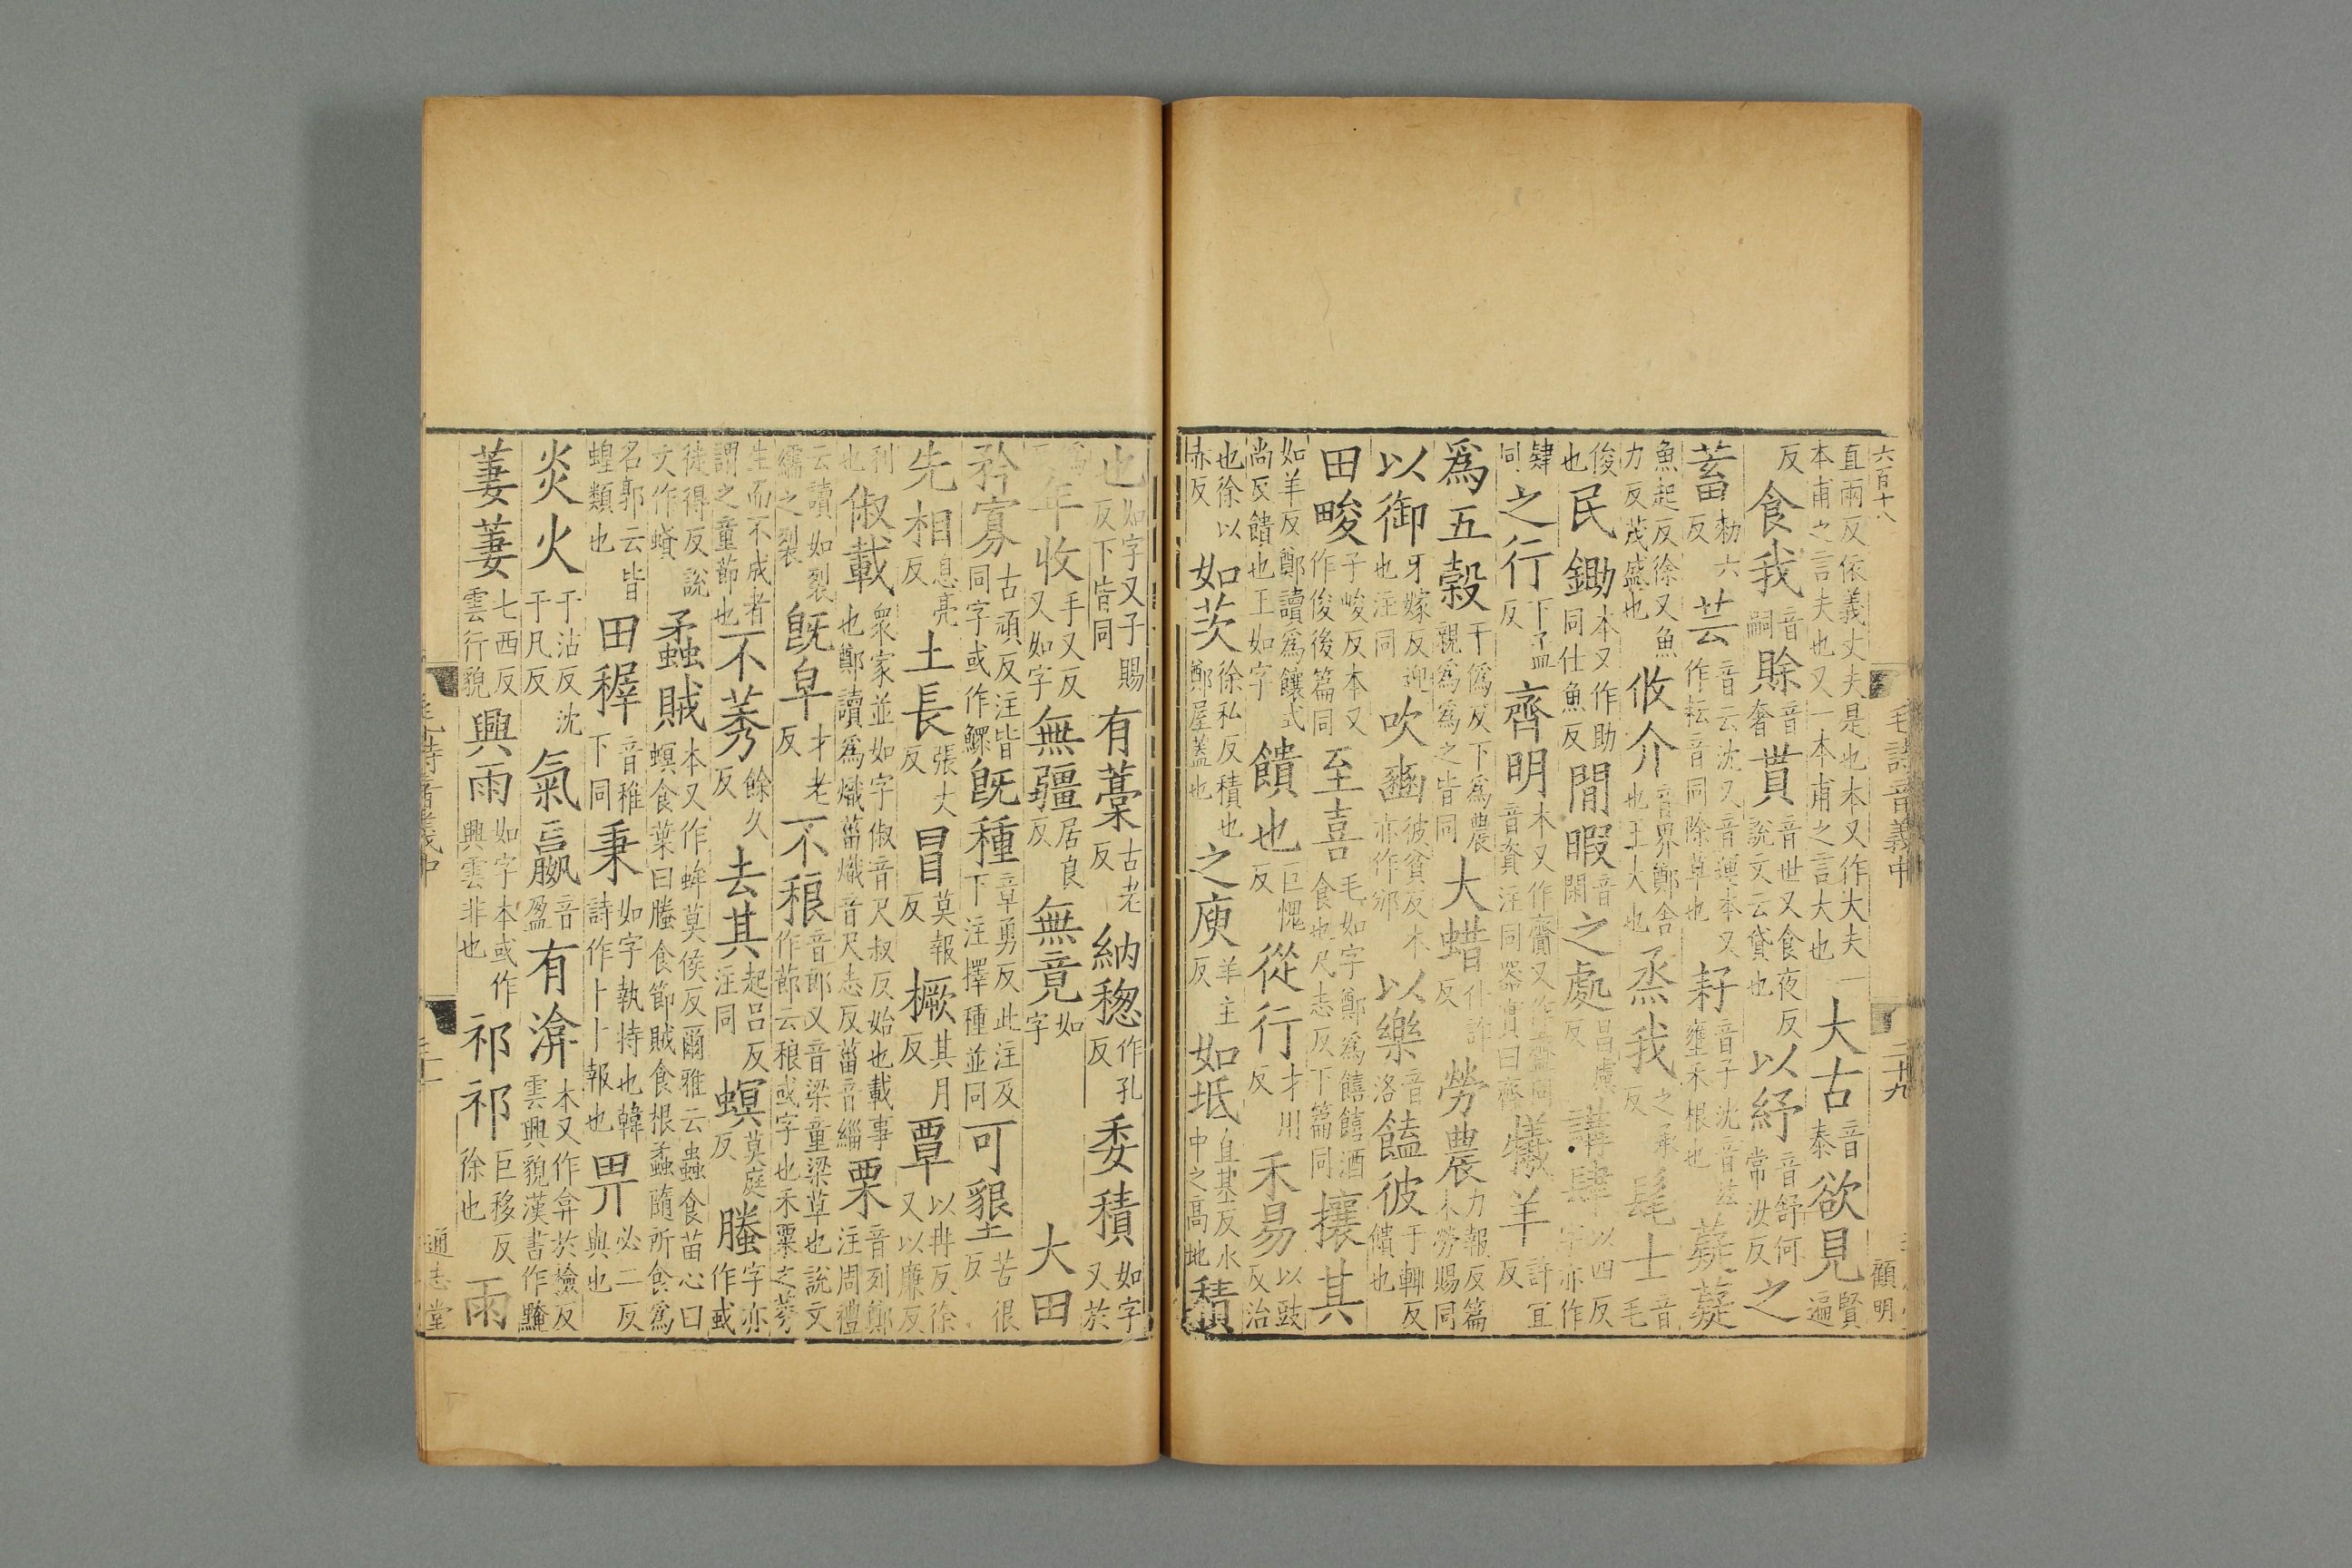 六百十八 毛詩音義中 二十九 顧明
直兩反依義丈夫是也本又作大夫一本甫之言夫也又一本甫之言大也大古音泰欲見賢遍
反食我音嗣賒音奢貰音世又食夜反說文云貸也以紓音舒何常汝反之
蓄勑六反芸音云沈又音運本又作耘音同除草也耔音子沈音兹壅禾根也薿薿
魚起反徐又魚力反茂盛也攸介音界鄭舍也王大也烝我之承反髦士音毛
俊也民鋤本又作助同仕魚反閒暇音閑之處昌慮反講肄以四反字亦作
肄同之行下孟反齊明本又作齍又作齎同音資注同器實曰齊犧羊許宜反
爲五穀于僞反下爲農親爲爲之皆同大蜡仕詐反勞農力報反篇末勞賜同
以御牙嫁反迎也注同吹豳彼貧反本亦作邠以樂音洛饁彼于輒反饋也
田畯子峻反本又作俊後篇同至喜毛如字鄭爲饎饎酒食也尺志反下篇同攘其
如羊反鄭讀爲饟式尚反饋也王如字饋也巨愧反從行才用反禾易以豉反治
也徐以赤反如茨徐私反積也鄭屋蓋也之庾羊主反如坻直基反水中之高地積
也如字又子賜反下皆同有藁古老反納稯作孔反委積如字又於
爲反年收手又反又如字無疆居良反無竟如字大田
矜寡古頑反注皆同字或作鰥旣種章勇反此注及下注擇種並同可墾苦很反
先相息亮反土長張丈反冒莫報反橛其月反覃以冉反徐又以廉反
利也俶載衆家並如字俶音尺叔反始也載事也鄭讀爲熾菑熾音尺志反菑音緇栗音列鄭注周禮
云讀如裂繻之裂旣阜才老反不稂音郎又音梁童梁草也說文作蓈云稂或字也禾粟之莠
生而不成者謂之童蓈也不莠餘久反去其起呂反注同螟莫庭反螣字亦作𧎢
徒得反說文作蟘蟊賊本又作蛑莫侯反爾雅云蟲食苗心曰螟食葉曰螣食節賊食根蟊隨所食爲
名郭云皆蝗類也田穉音稚下同秉如字執持也韓詩作卜卜報也畀必二反與也
炎火于沾反沈于凡反氣嬴音盈有渰本又作弇於檢反雲興貌漢書作黤
萋萋七西反雲行貌興雨如字本或作興雲非也祁祁巨移反徐也雨
通志堂